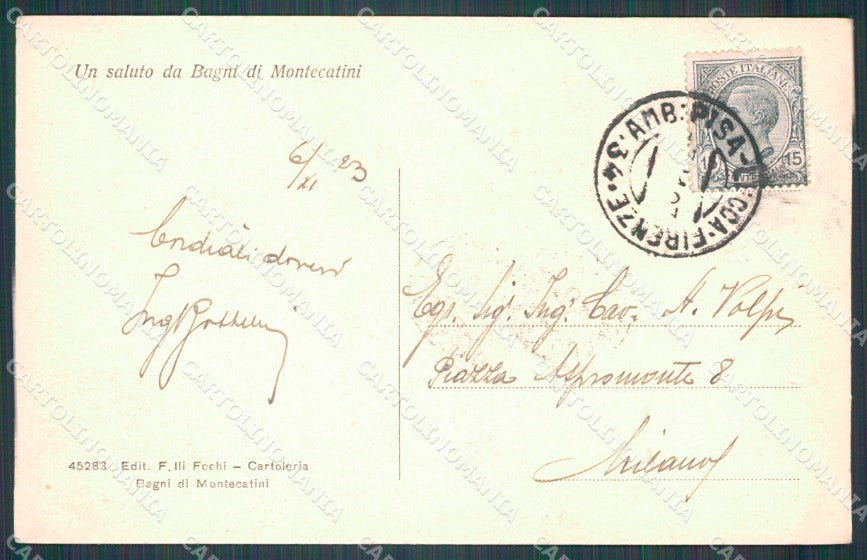 Un saluto da Bagni di Montecatini
POSTE ITALIANE
15 15
AMB. PISA-LUCCA-FIRENZE .34.
6/XI 23
Cordiali doveri
Ing
Egr. Sig. Ing. Cav. A. Volpi
Piazza Aspromonte 8
Milano
45283 Edit. F.lli Fochi – Cartoleria
Bagni di Montecatini
CARTOLINOMANIA